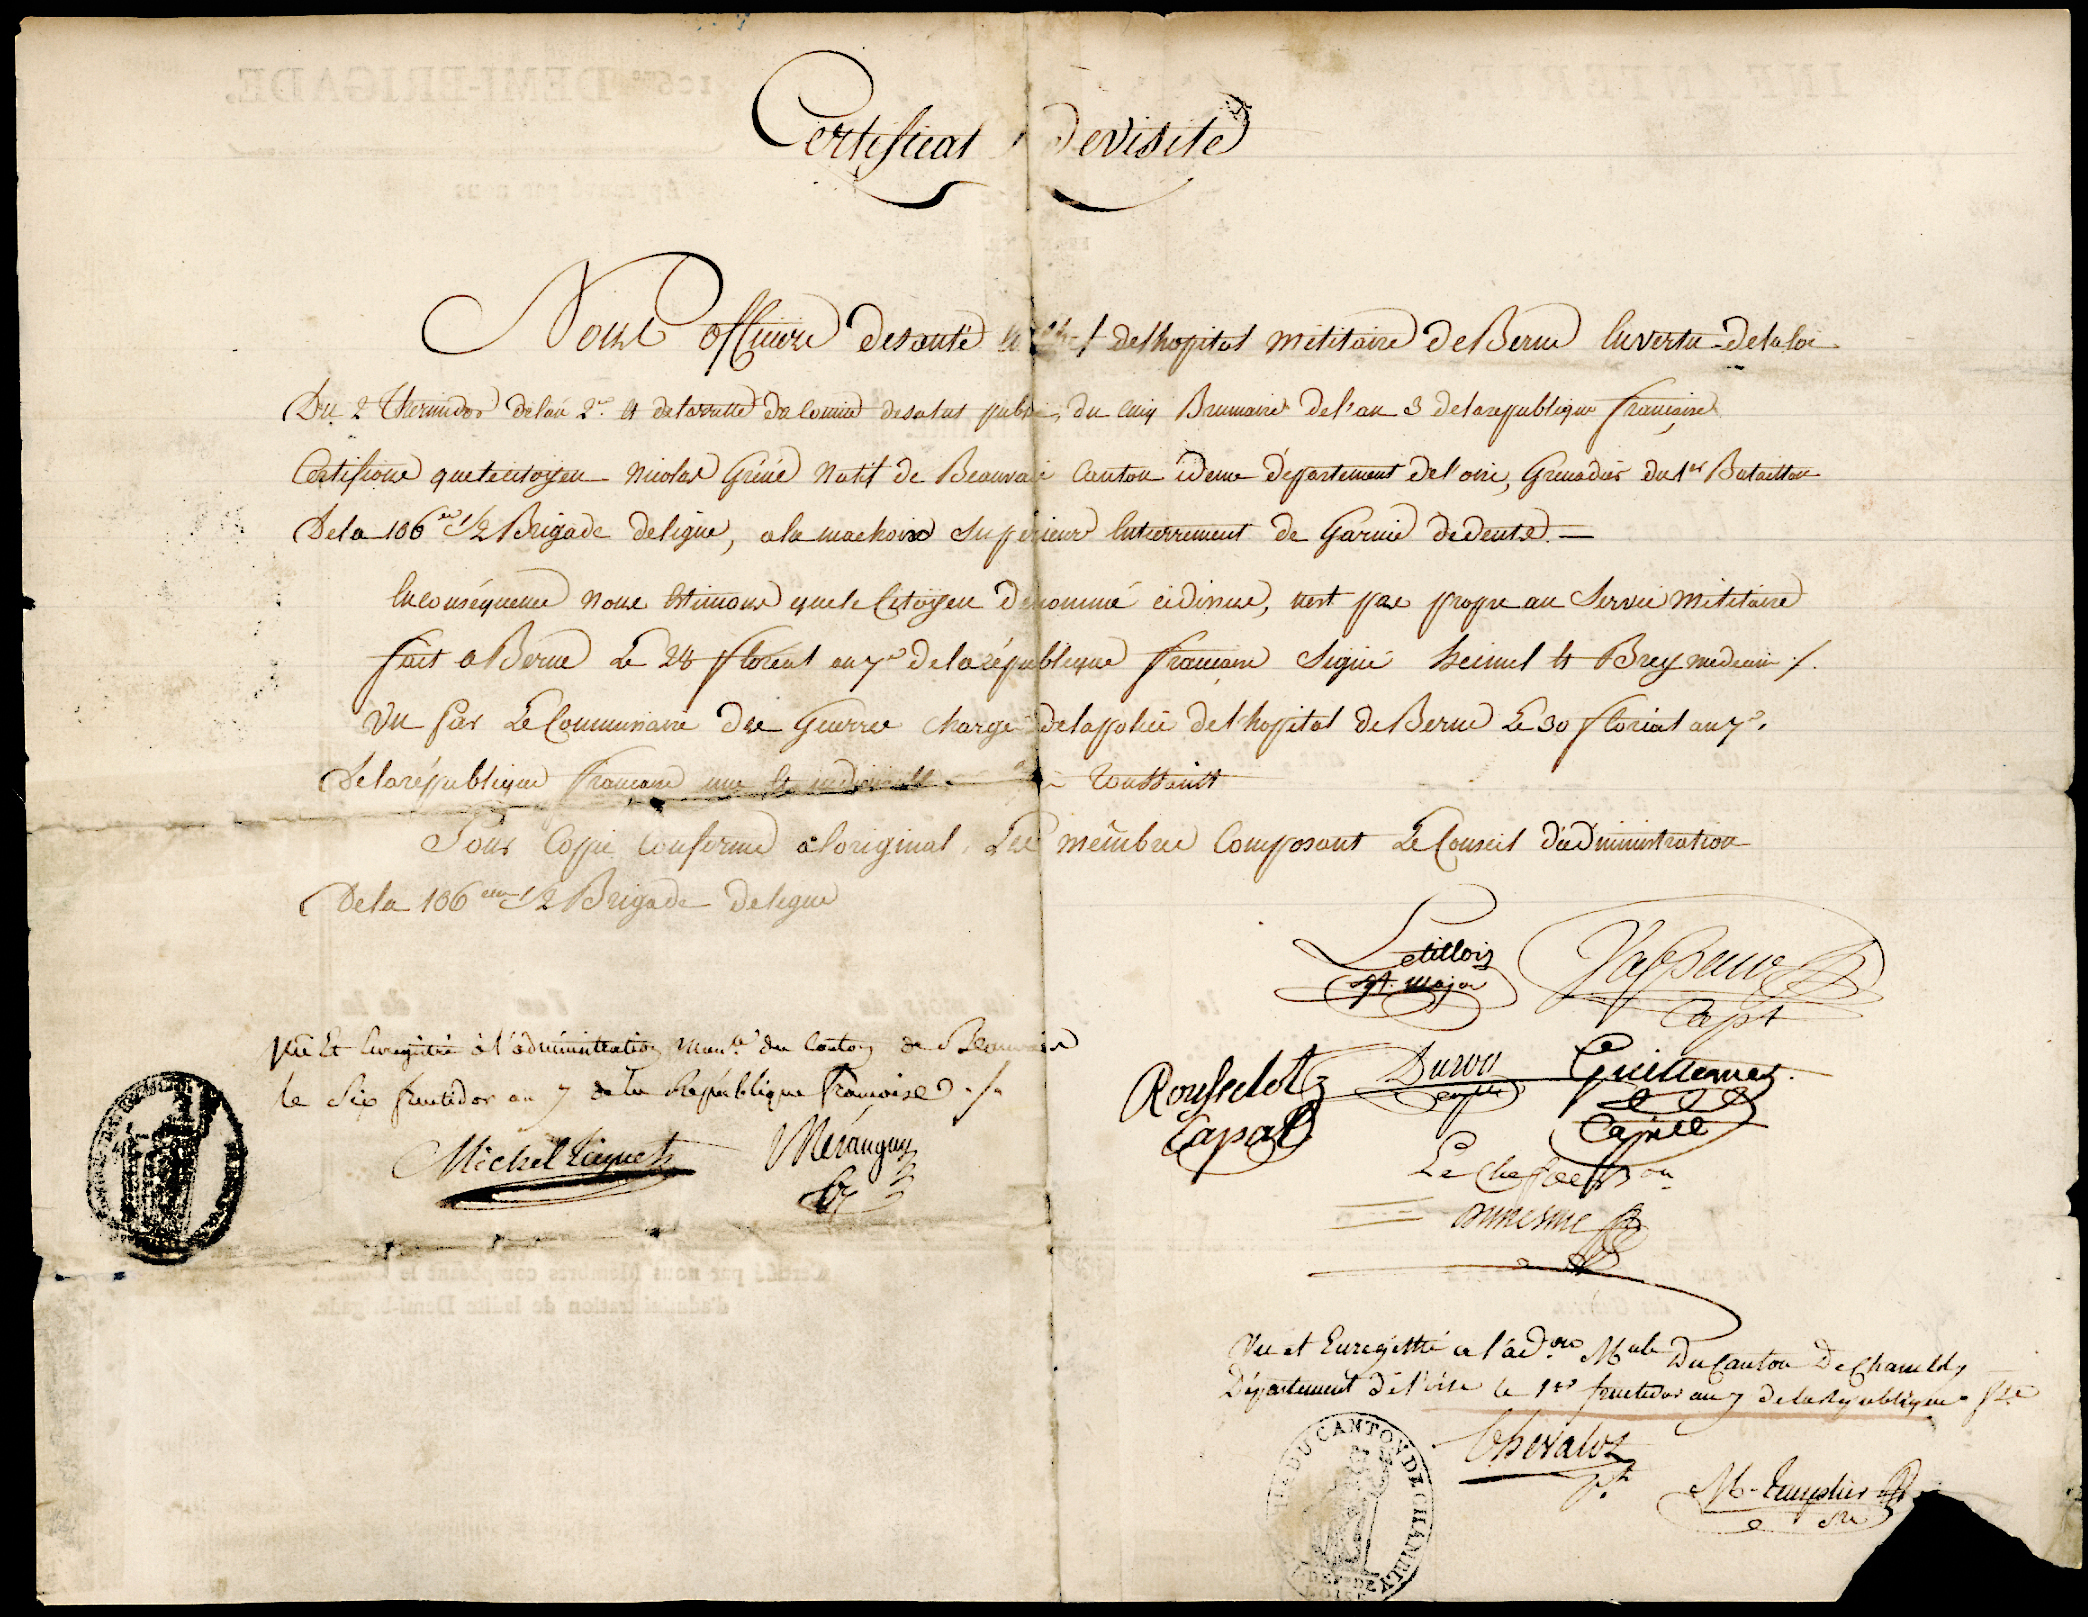 Certificat de visite
Nous officiers de santé en chef de lhopital militaire de Berne En vertu de la loi
Du 2 Thermidor de lan 2e et de larretté du Comité de salus public, du cinq Brumaire de l'an 3 de la republique francaise
Certifions que le citoyen Nicolas Natif de Beauvais Canton idem département de l'oise, Grenadier du 1er Bataillon
De la 106eme 1/2 Brigade de ligne, a la machoire Superieure de Garnie de dents.
En conséquence nous Estimons que le Citoyen dénommé cidessus, n'est pas propre au Service Militaire
fait a Berne Le 28 floréal an 7e de la république francaise signé heimel et Brey medecin /.
Vu par Le Commissaire des Guerres chargé de la police de lhopital de Berne Le 30 floréal an 7e.
De la république francaise une et indivisible Toussaint
Pour Copie Conforme a loriginal. Les membres Composant Le Conseil d'administration
De la 106eme 1/2 Brigade de ligne
Letillois
Sgt. Major
Capt
Vu Et Enregistré à l'administration Munle du Canton de Beauvais
le Six fructidor an 7 de la République françoise ./.
Rousselot Duron Guillemet
Capal Capne
Michel
Le Chef de Bon
Vu et Enregistré a l'adon Male Du Canton De Chambly
Département de l'oise le 1er fructidor an 7 de la Republique
Chevalier
Pt
M. Templier
DU CANTON DE CHAMBLY
DEPT DE
L'OISE